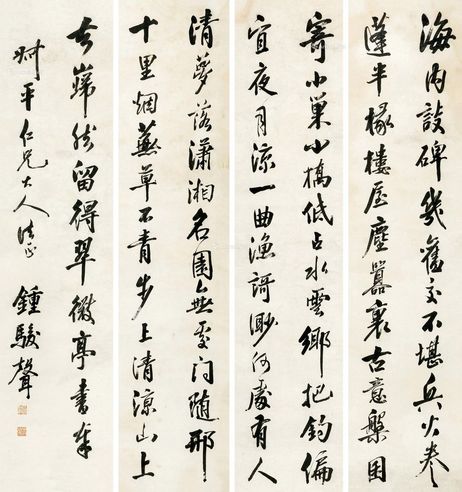 海内談碑幾舊交不堪兵火卷
蓬半椽樓屋塵囂裏古意槃囷
寄小巢小橋低占水雲鄉把釣偏
宜夜月涼一曲漁謌渺何處有人
清夢落瀟湘名園無處問隨邢
十里烟蕪草不青步上清涼山上
去巋然留得翠微亭書奉
尗平仁兄大人法正 鍾駿聲